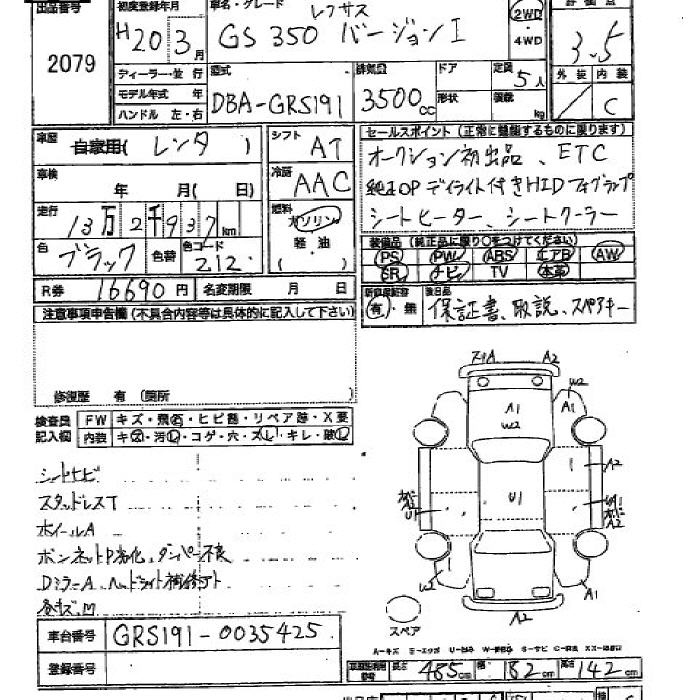 出品番号
2079
初度登録年月
H20 3月
車名・グレード
レクサス
GS 350 バージョンI
2WD
・4WD
3.5
ディーラー・並行
モデル年式 年
ハンドル 左・右
型式
DBA-GRS191
排気量
3500cc
ドア
形状
定員
5人
積載
kg
外装 内装
C
車歴
自家用( レンタ )
シフト
AT
車検
年 月( 日)
冷房
AAC
走行
13万2千937km
燃料
ガソリン
軽・油
( )
色
ブラック
色替
色コード
212
R券
16690円
名変期限 月 日
セールスポイント (正常に機能するものに限ります)
オークション初出品、ETC
純正OPデイライト付きHIDフォグランプ
シートヒーター、シートクーラー
装備品 (純正品に限り○をつけてください)
PS PW ABS エアB AW
SR ナビ TV 本革
新車保証書
有・無
後日品
保証書、取説、スペアキー
注意事項申告欄 (不具合内容等は具体的に記入して下さい)
修復歴 有 (箇所
検査員
記入欄
FW キズ・飛石・ヒビ割・リペア跡・X要
内装 キズ・汚れ・コゲ・穴・スレ・キレ・破れ
スタッドレスT
ホイールA
ボンネットP劣化、ダンパー不良
DミラーA、ヘッドライト補修ト
各キズ、凹
車台番号
GRS191-0035425
登録番号
スペア
A2
A1
W2
W2
A1
A2
U1
U1
A2
A1
A2
長さ 485cm 幅 182cm 高さ 142cm